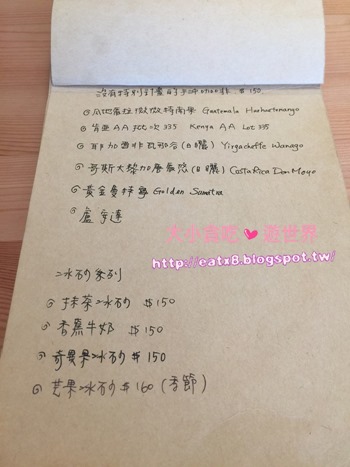 沒有特別計畫的手沖coffee $150
瓜地馬拉微微特南果 Guatemala Huehuetenango
肯亞AA批次335 Kenya AA Lot 335
耶加雪菲瓦那合(日曬) Yirgacheffe Wanago
哥斯大黎加唐慕悠(日曬) Costa Rica Don Mayo
黃金曼特寧 Golden Sumatra
盧安達
大小姐吃❤遊世界
http://eatx8.blogspot.tw/
冰砂系列
抹茶冰砂 $150
香蕉牛奶 $150
奇異果冰砂 $150
芒果冰砂 $160 (季節)